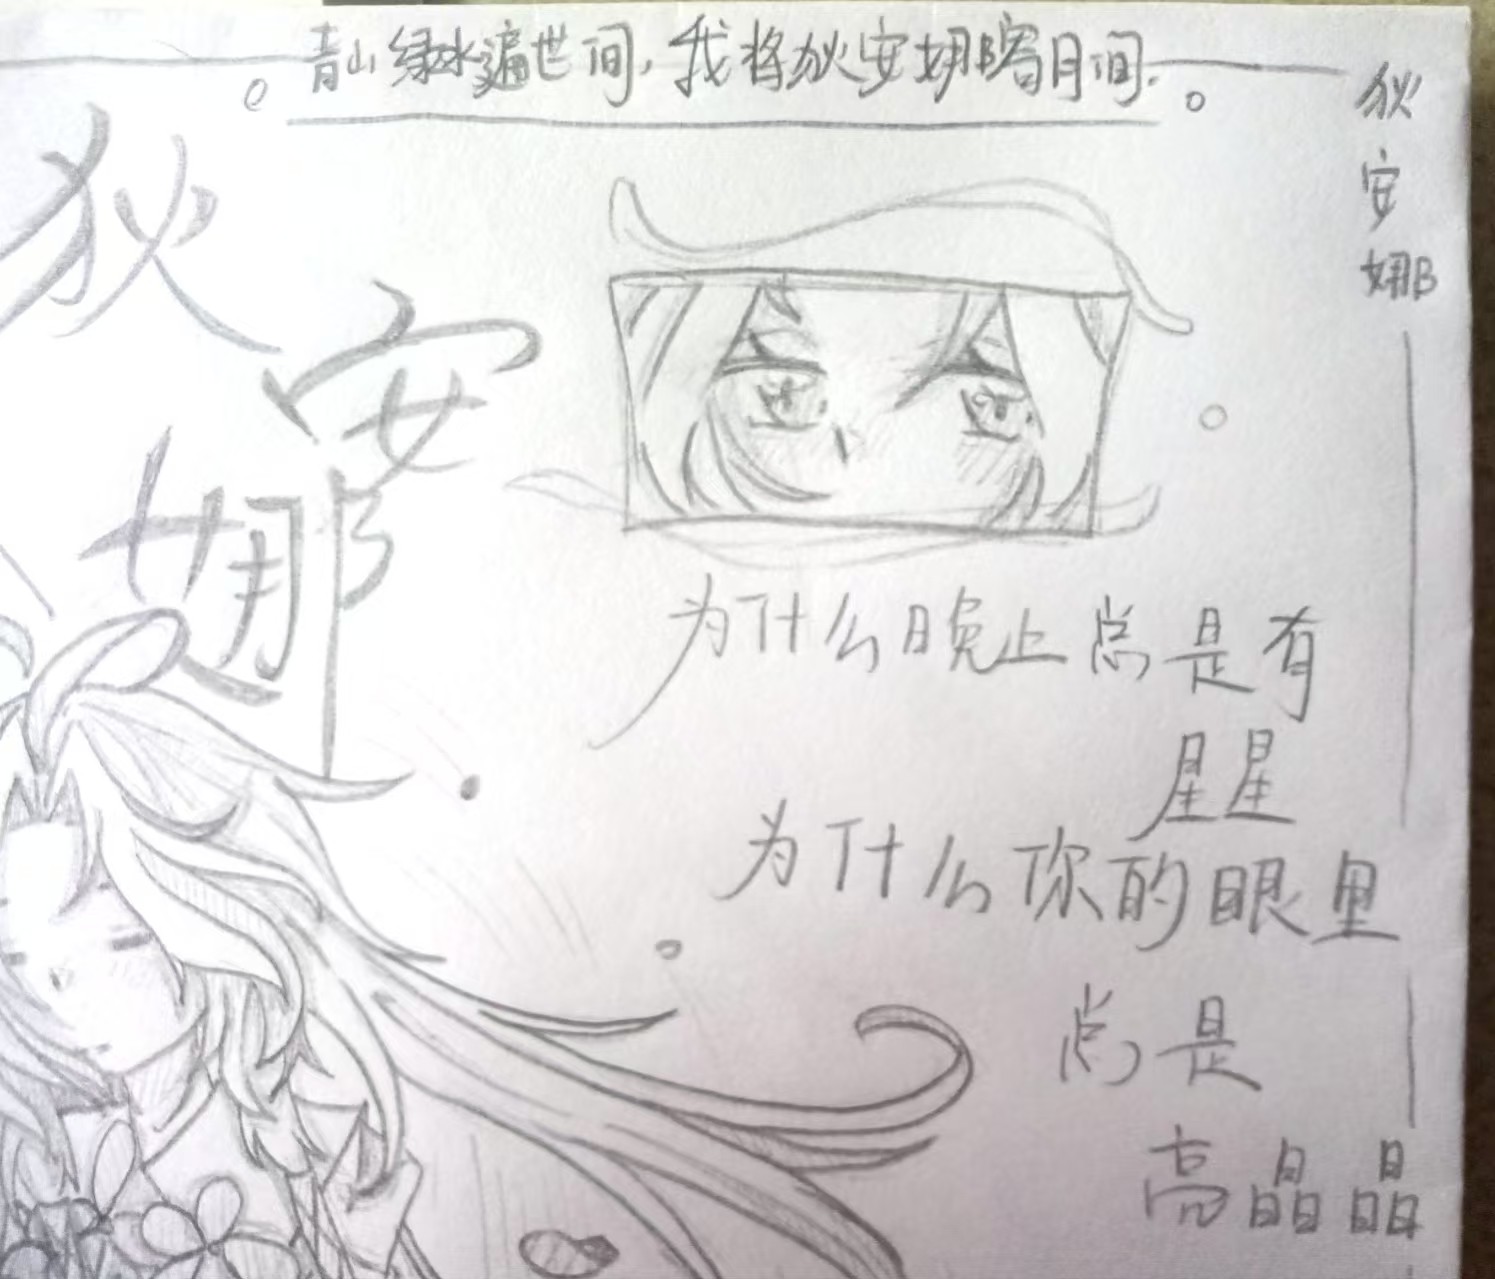 青山绿水遍世间,我将狄安娜寄月间.
狄安娜
狄
安
娜
为什么晚上总是有
星星
为什么你的眼里
总是
亮晶晶